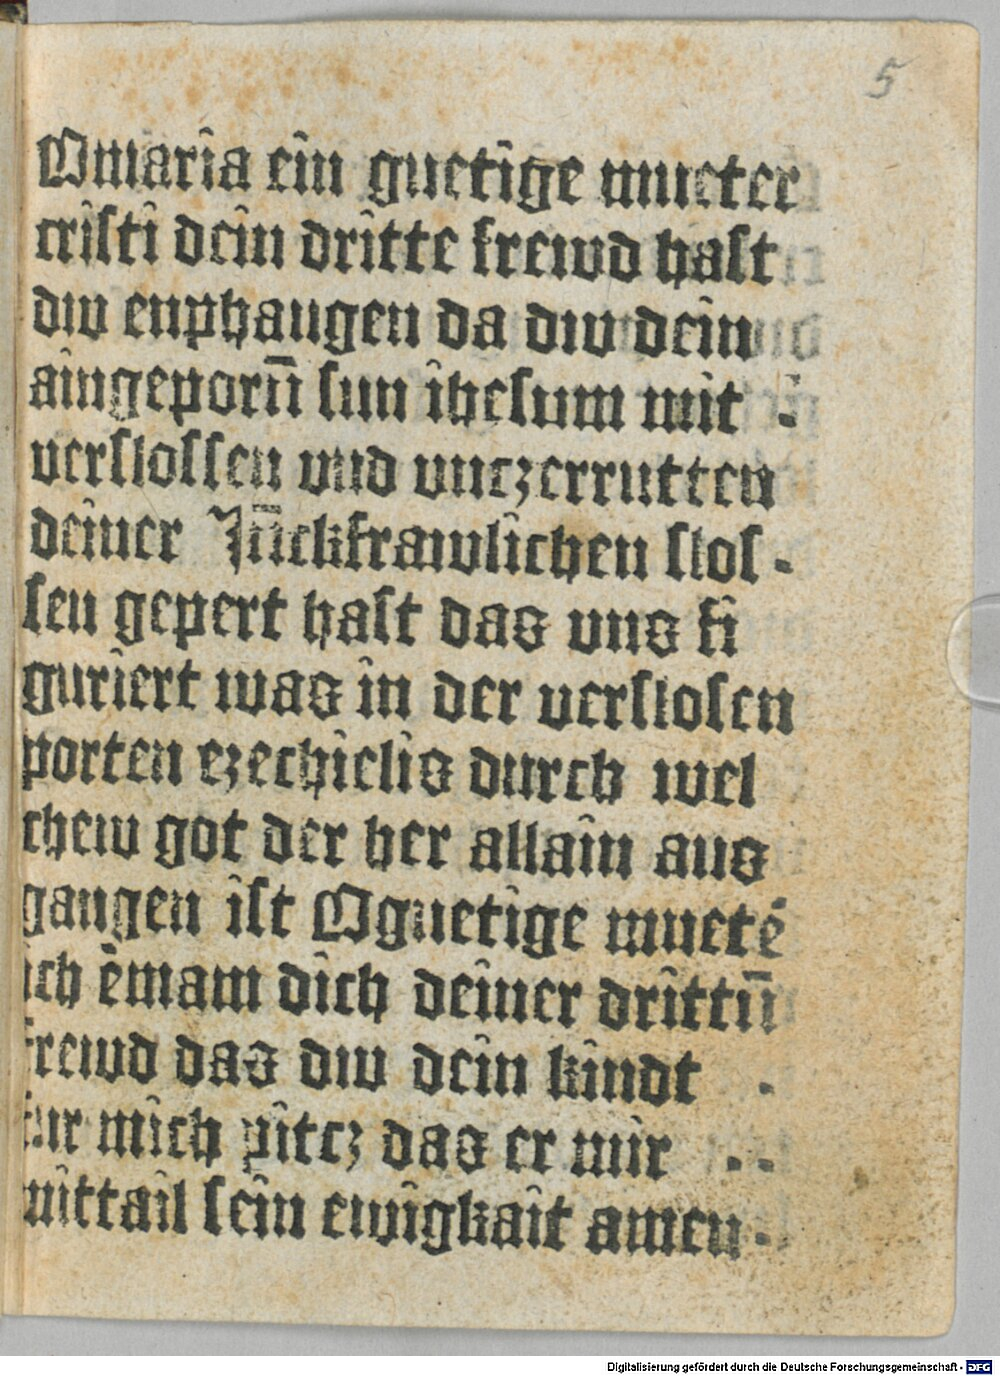 5
Omaria ein guetige mueter
cristi dein dritte frewd hast
diw enphangen da diw dein
aingeporn̄ sun ihesum mit .
verslossen vnd vnczerrutten
deiner Jūckfrawlichen slos .
sen gepert hast das vns fi
guriert was in der verslosen
porten ezechielis durch wel
chew got der her allain aus
gangen ist Oguetige muetē
ich ēmam dich deiner drittn̄
frewd das diw dein kindt .
fur mich pitcz das er mir . .
mittail sein ewigkait amen .
Digitalisierung gefördert durch die Deutsche Forschungsgemeinschaft - DFG